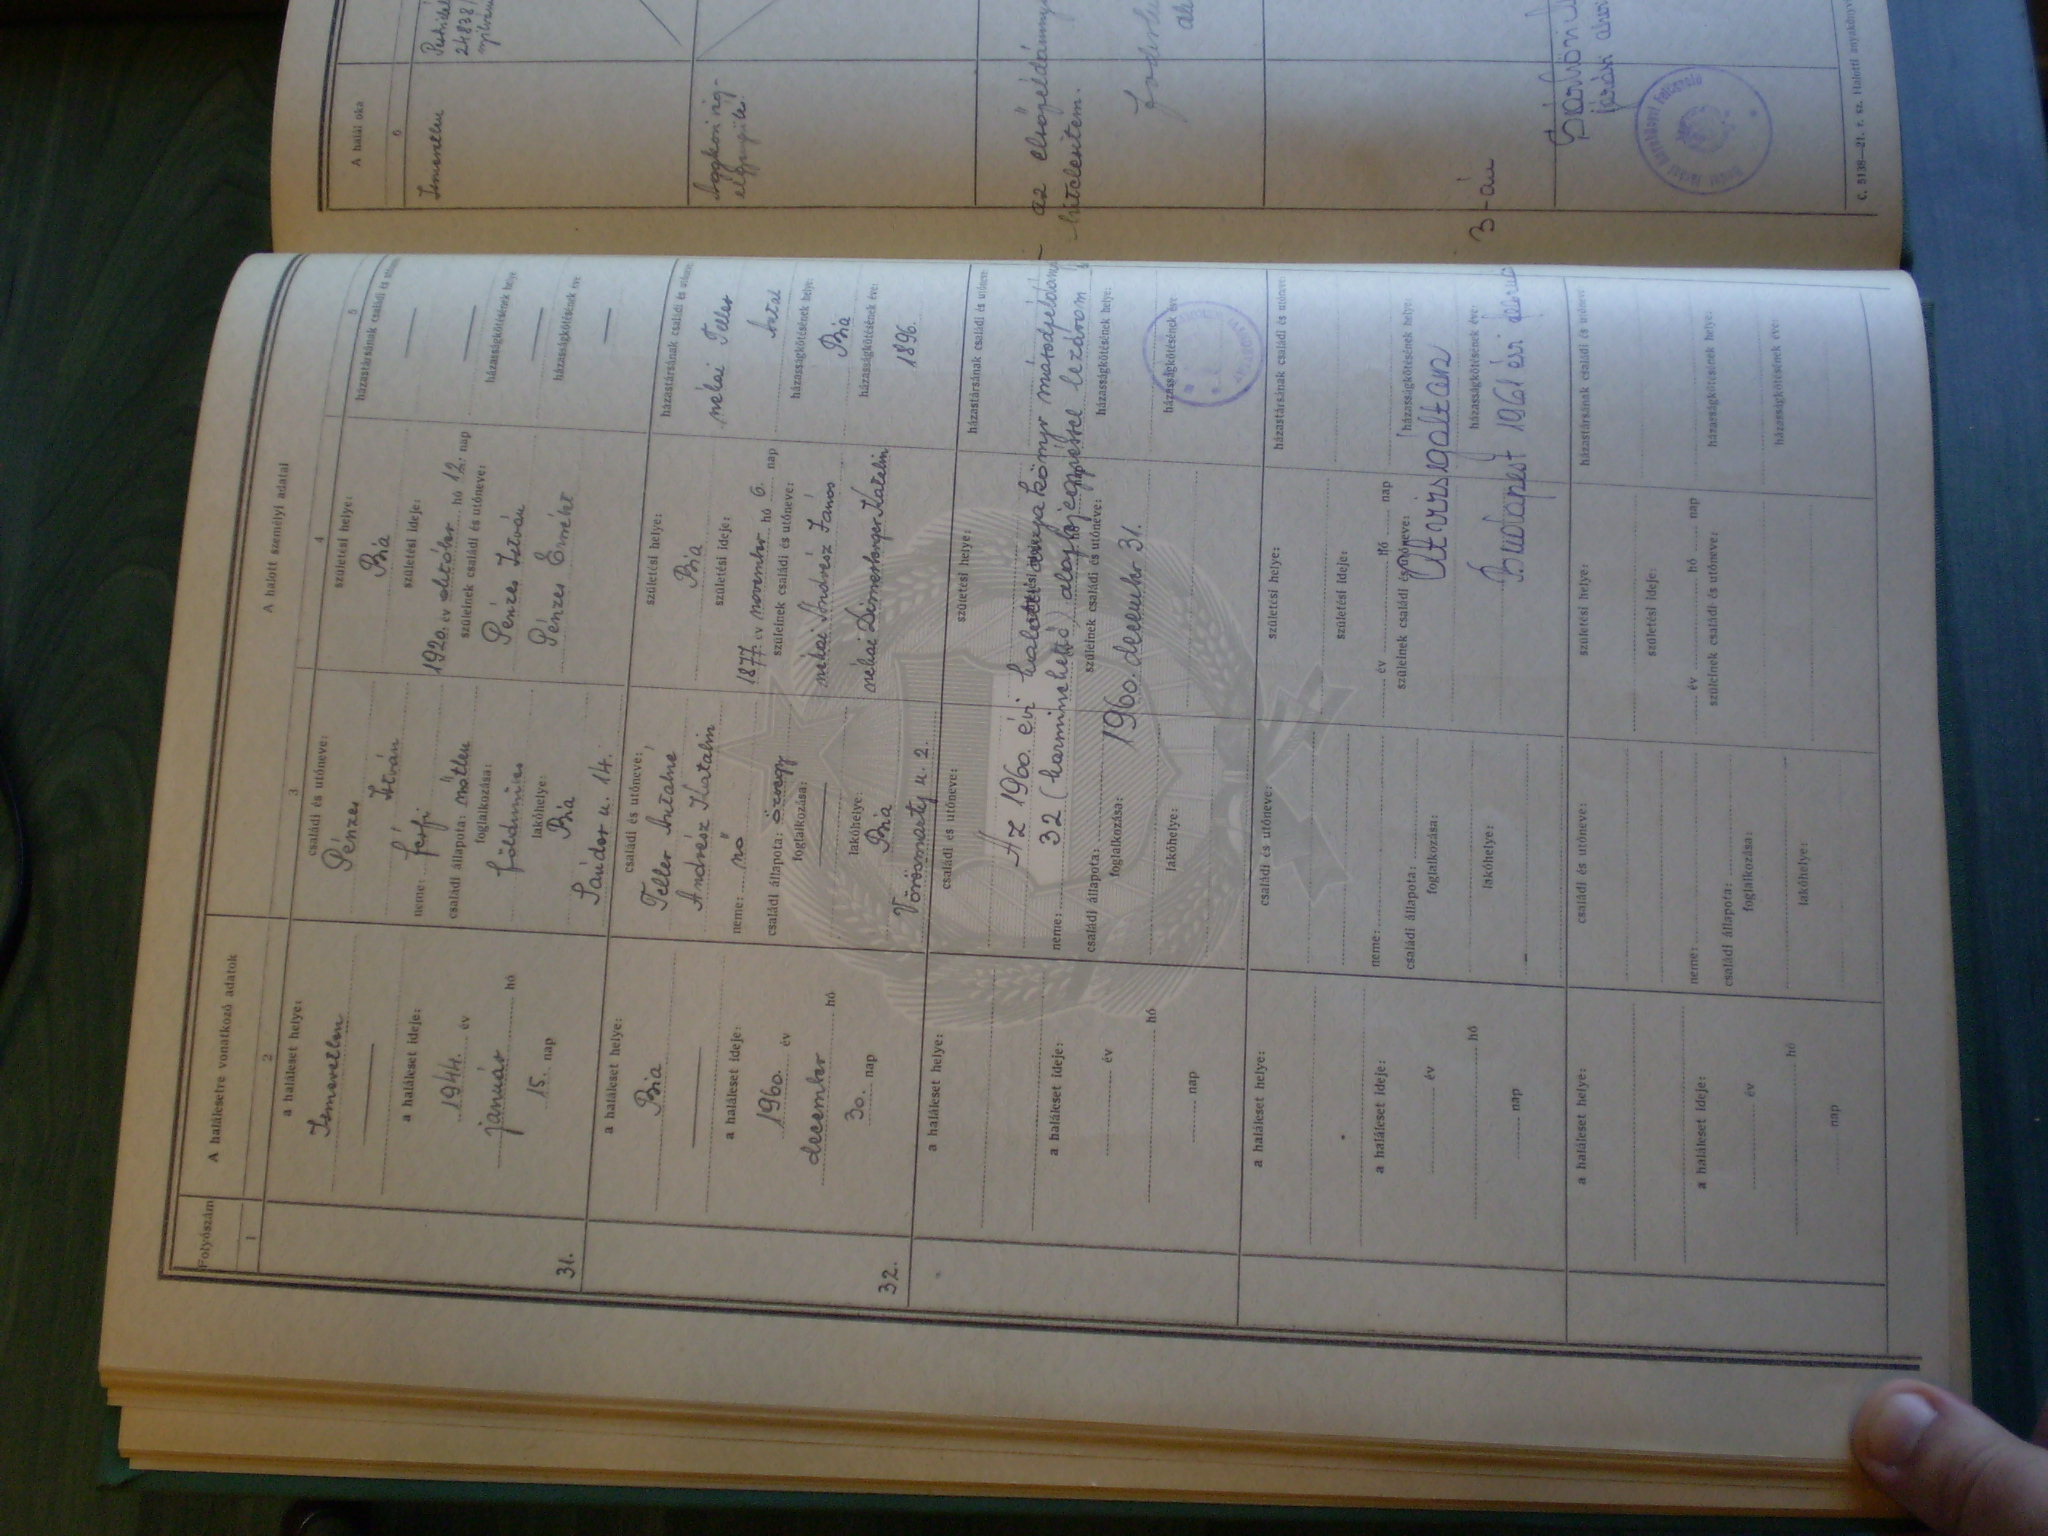 Folyószám
A halálesetre vonatkozó adatok
A halott személyi adatai
1
2
3
4
5
31.
a haláleset helye:
Ismeretlen
a haláleset ideje:
1944. év
január hó
15. nap
családi és utóneve:
Pénzes
István
neme: férfi
családi állapota: nőtlen
foglalkozása:
földműves
lakóhelye:
Bia
Sándor u. 14.
születési helye:
Bia
születési ideje:
1920. év október hó 12. nap
szüleinek családi és utóneve:
Pénzes István
Pénzes Erzsébet
házastársának családi és utóneve:
házasságkötésének helye
házasságkötésének éve
32.
a haláleset helye:
Bia
a haláleset ideje:
1960. év
december hó
30. nap
családi és utóneve:
Teller Antalné
Andrész Katalin
neme: nő
családi állapota: özvegy
foglalkozása:
lakóhelye:
Bia
Vörösmarty u. 2.
születési helye:
Bia
születési ideje:
1877. év november hó 6. nap
szüleinek családi és utóneve:
néhai Andrész János
néhai Katalin
házastársának családi és utóneve:
néhai Teller
Antal
házasságkötésének helye:
Bia
házasságkötésének éve:
1896.
a haláleset helye:
a haláleset ideje:
év
hó
nap
családi és utóneve:
neme:
családi állapota:
foglalkozása:
lakóhelye:
születési helye:
szüleinek családi és utóneve:
házastársának családi és utóneve:
házasságkötésének helye:
házasságkötésének éve
Az 1960. évi halotti anyakönyv másodpéldányát
32 (harminckettő) alapbejegyzéssel lezárom
1960. december 31.
a haláleset helye:
a haláleset ideje:
év
hó
nap
családi és utóneve:
neme:
családi állapota:
foglalkozása:
lakóhelye:
születési helye:
születési ideje:
év hó nap
szüleinek családi és utóneve:
házastársának családi és utóneve:
házasságkötésének helye:
házasságkötésének éve:
Átvizsgáltam
Budapest 1961 évi február
a haláleset helye:
a haláleset ideje:
év
hó
nap
családi és utóneve:
neme:
családi állapota:
foglalkozása:
lakóhelye:
születési helye:
születési ideje:
év hó nap
szüleinek családi és utóneve:
házastársának családi és utóneve:
házasságkötésének helye:
házasságkötésének éve:
A halál oka
6
Ismeretlen
24838/
Aggkori vég-
elgyengülés.
az elsőpéldánnyal
hitelesítem.
3-án
járási
C. 5138—21. r. sz. Halotti anyakönyv